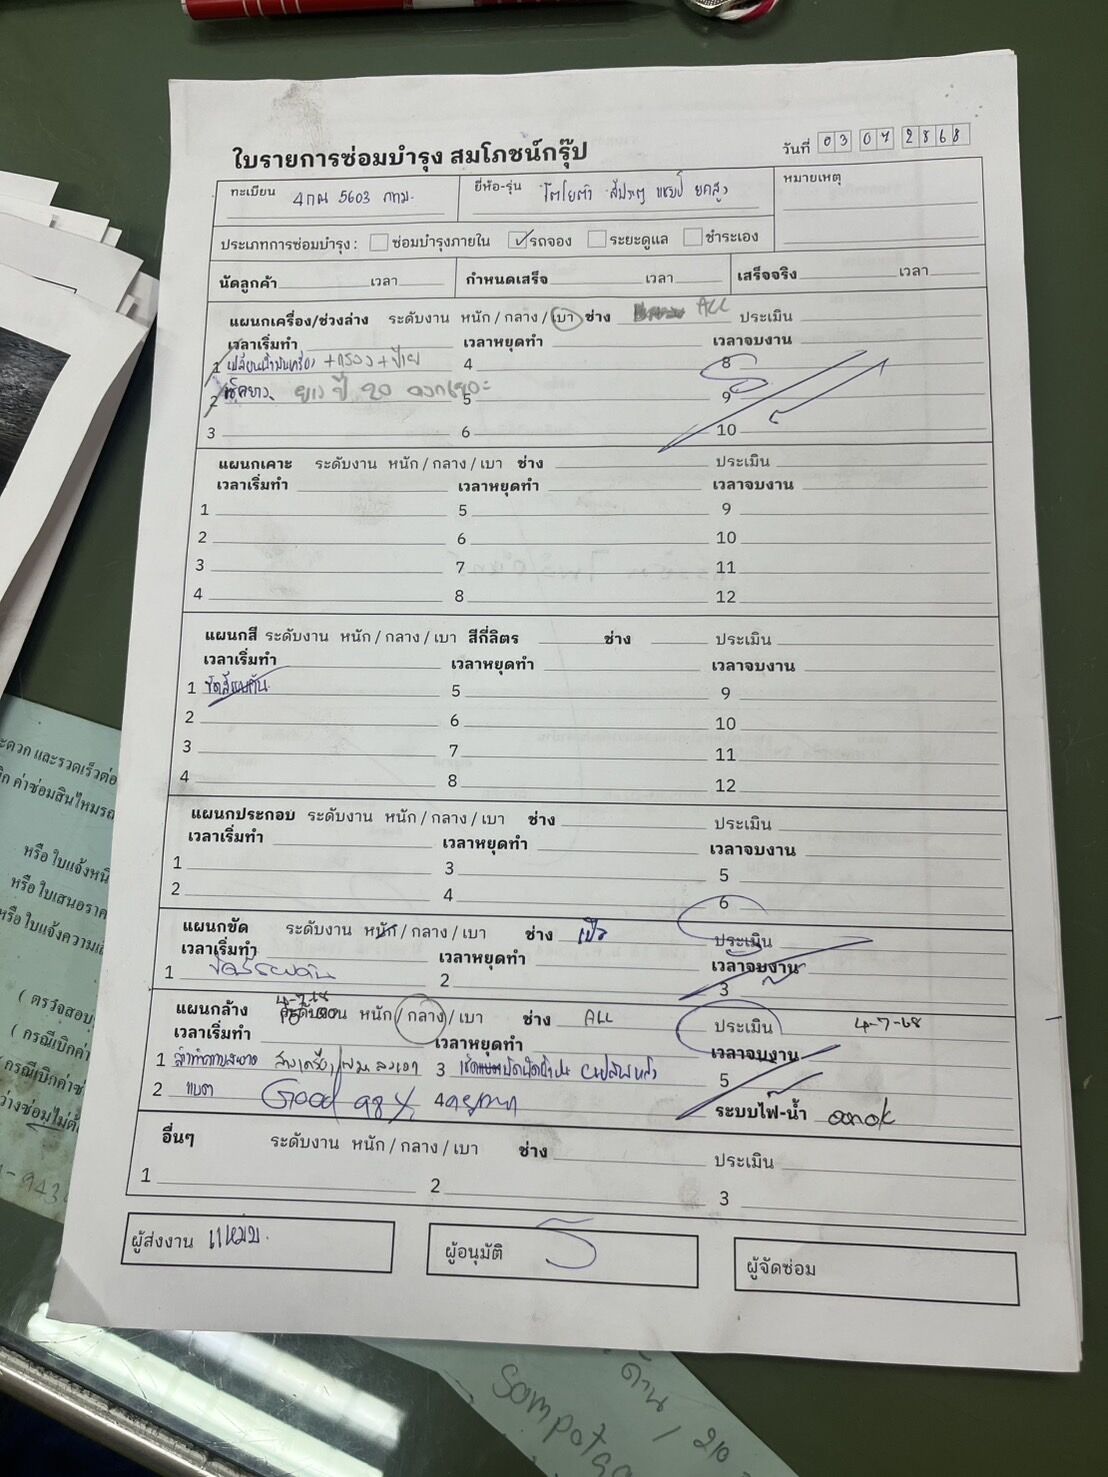 ใบรายการซ่อมบำรุง สมโภชน์กรุ๊ป
วันที่ 03 07 2568
ทะเบียน 4กณ 5603 กทม. ยี่ห้อ-รุ่น โตโยต้า ยกสูง หมายเหตุ
ประเภทการซ่อมบำรุง : ซ่อมบำรุงภายใน รถจอง ระยะดูแล ชำระเอง
นัดลูกค้า เวลา กำหนดเสร็จ เวลา เสร็จจริง เวลา
แผนกเครื่อง/ช่วงล่าง ระดับงาน หนัก / กลาง / เบา ช่าง ALL ประเมิน
เวลาเริ่มทำ เวลาหยุดทำ เวลาจบงาน
1 เปลี่ยนน้ำมันเครื่อง +กรอง + ป้าย 4 8
2 เช็คยาง ยาง ปี 20 5 9
3 6 10
แผนกเคาะ ระดับงาน หนัก / กลาง / เบา ช่าง ประเมิน
เวลาเริ่มทำ เวลาหยุดทำ เวลาจบงาน
1 5 9
2 6 10
3 7 11
4 8 12
แผนกสี ระดับงาน หนัก / กลาง / เบา สีกี่ลิตร ช่าง ประเมิน
เวลาเริ่มทำ เวลาหยุดทำ เวลาจบงาน
1 5 9
2 6 10
3 7 11
4 8 12
แผนกประกอบ ระดับงาน หนัก / กลาง / เบา ช่าง ประเมิน
เวลาเริ่มทำ เวลาหยุดทำ เวลาจบงาน
1 3 5
2 4 6
แผนกขัด ระดับงาน หนัก / กลาง / เบา ช่าง ประเมิน
เวลาเริ่มทำ เวลาหยุดทำ เวลาจบงาน
1 2 3
แผนกล้าง 4-7-68 ระดับงาน หนัก / กลาง / เบา ช่าง ALL ประเมิน 4-7-68
เวลาเริ่มทำ เวลาหยุดทำ เวลาจบงาน
1 ล้างทำความสะอาด 3 5
2 Good 4 ระบบไฟ-น้ำ ok
อื่นๆ ระดับงาน หนัก / กลาง / เบา ช่าง ประเมิน
1 2 3
ผู้ส่งงาน แหมบ ผู้อนุมัติ ผู้จัดซ่อม
ะดวก และรวดเร็วต่อ
ค่าซ่อมสินไหมรถ
หรือ ใบแจ้งหนี้
หรือ ใบเสนอราค
หรือ ใบแจ้งความเส
( ตรวจสอบ
( กรณีเบิกค่าซ
ว่างซ่อมไม่ต้